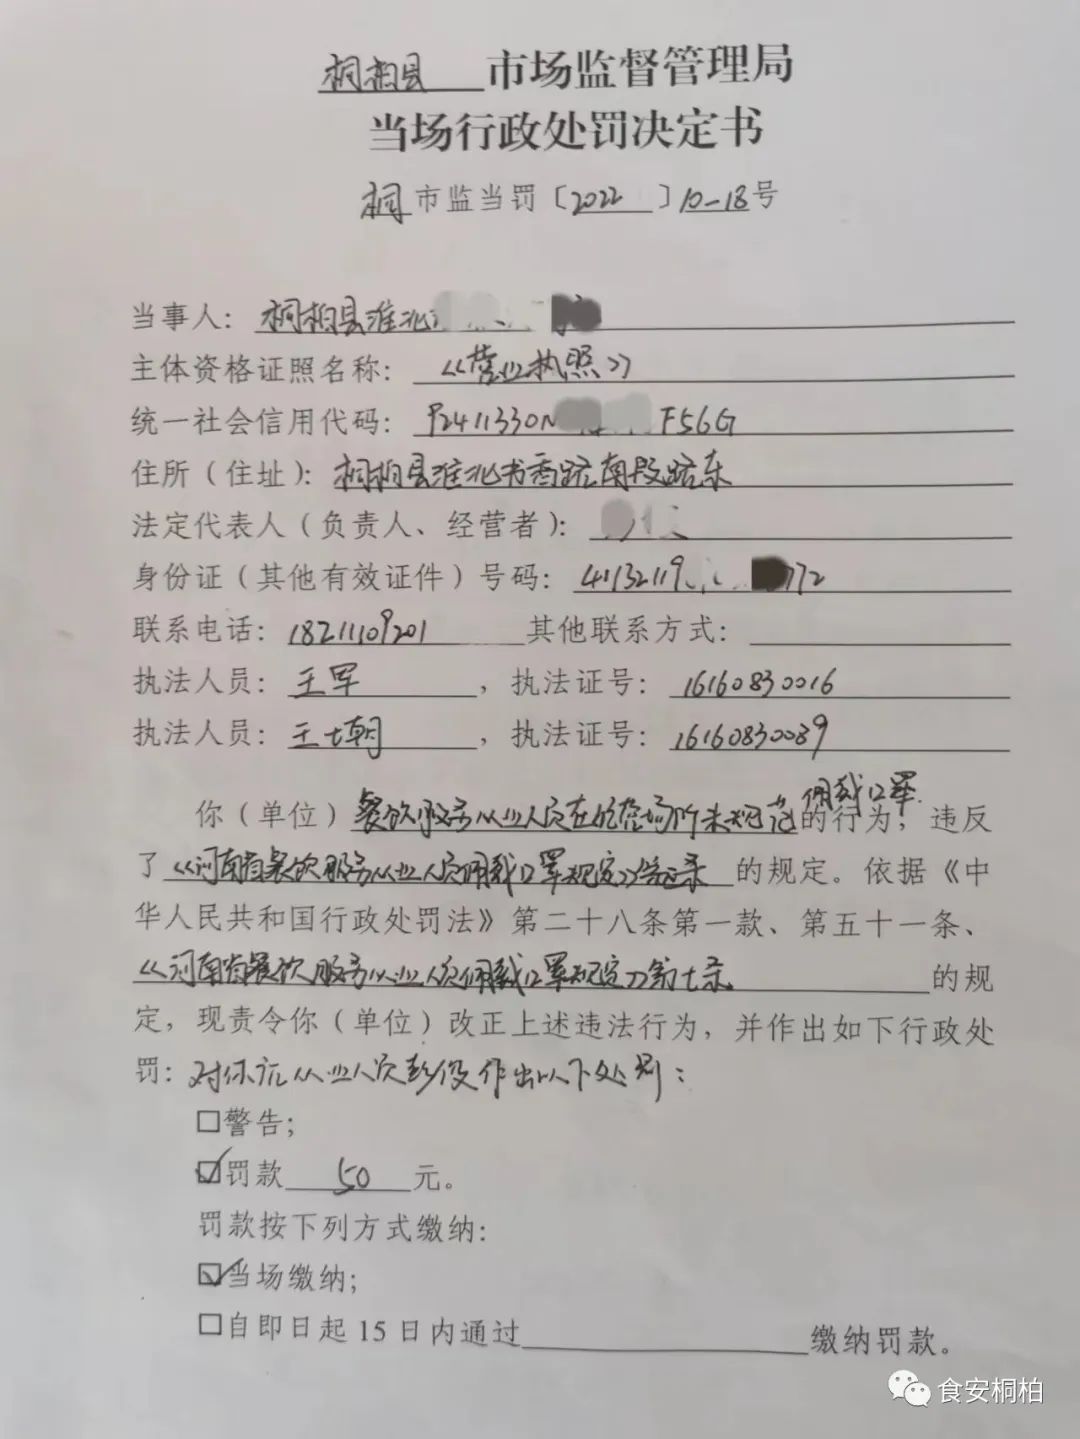 桐柏县 市场监督管理局
当场行政处罚决定书
桐市监当罚〔2022 〕10-18号
当事人：桐柏县淮北
主体资格证照名称：《营业执照》
统一社会信用代码：92411330N F56G
住所（住址）：桐柏县淮北书香路南段路东
法定代表人（负责人、经营者）：
身份证（其他有效证件）号码：41132119 772
联系电话：18211109201 其他联系方式：
执法人员：王军 ，执法证号：16160830016
执法人员：王 朝 ，执法证号：16160830039
佩戴口罩
你（单位）餐饮服务从业人员在经营场所未规范的行为，违反
了《河南省餐饮服务从业人员佩戴口罩规定》 条 的规定。依据《中
华人民共和国行政处罚法》第二十八条第一款、第五十一条、
《河南省餐饮服务从业人员佩戴口罩规定》第七条 的规
定，现责令你（单位）改正上述违法行为，并作出如下行政处
罚：对你店从业人员彭 作出以下处罚：
□警告；
☑罚款 50 元。
罚款按下列方式缴纳：
☑当场缴纳；
□自即日起 15 日内通过 缴纳罚款。
食安桐柏